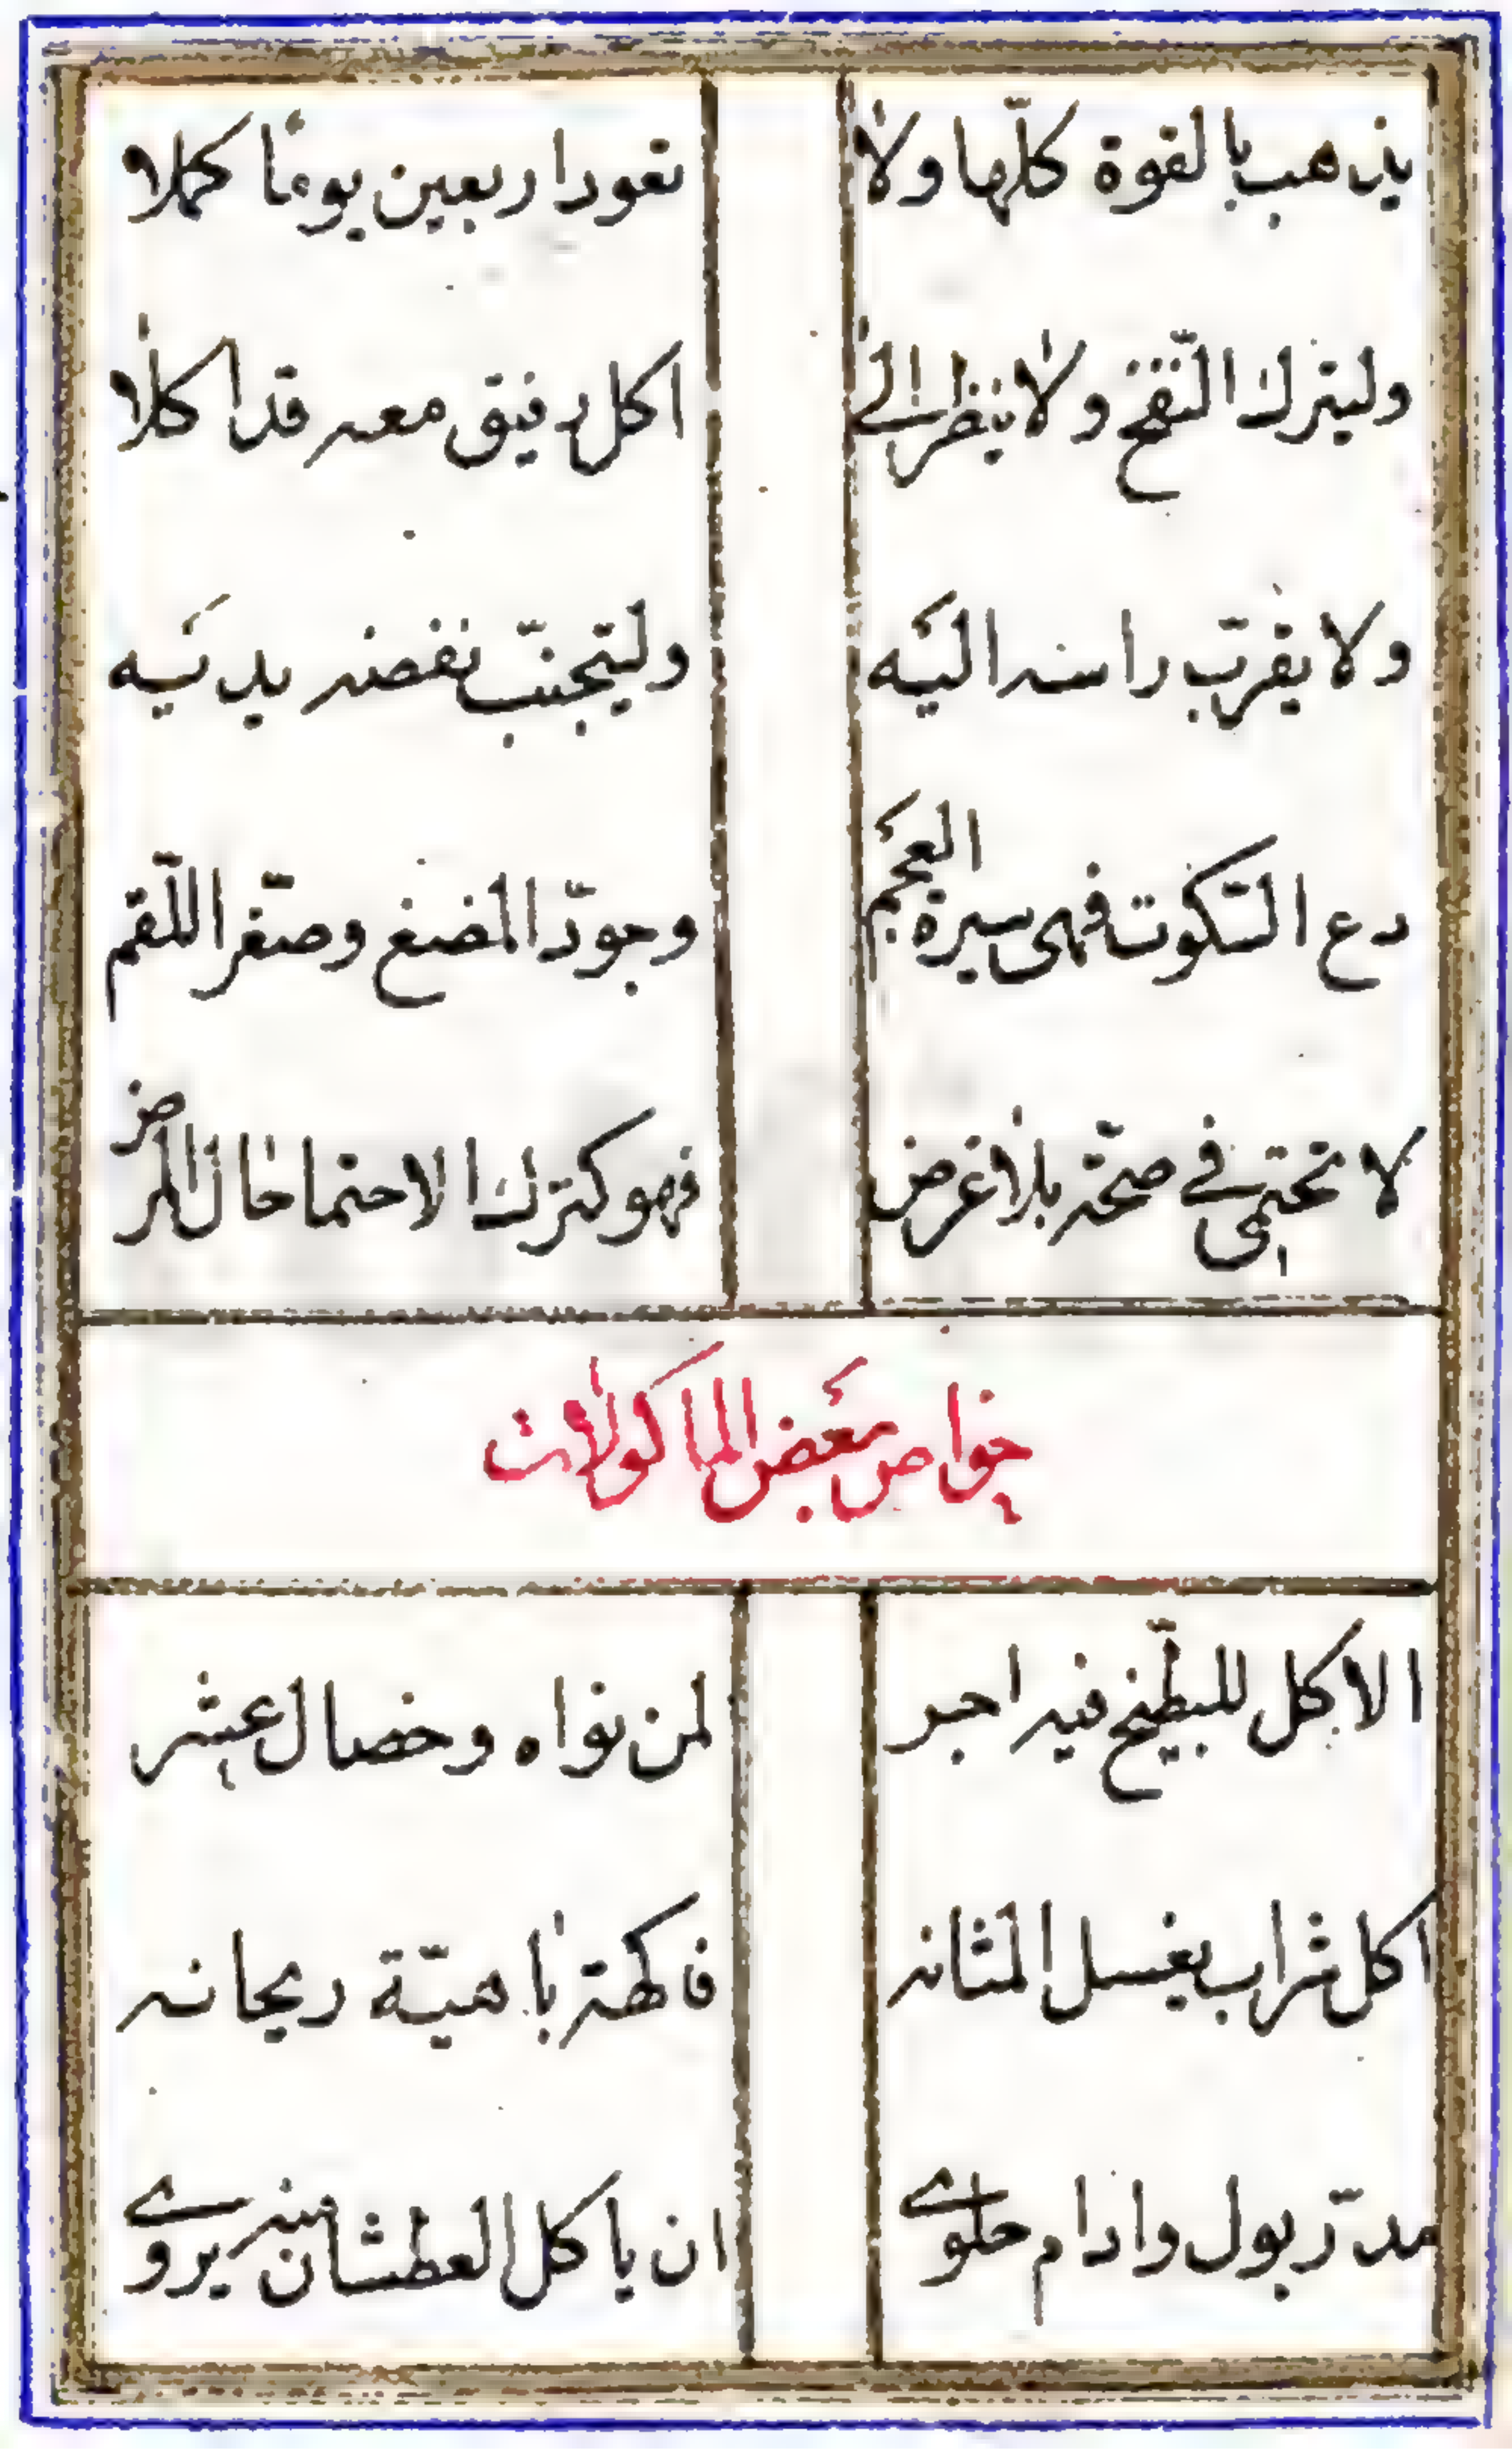 يذهب بالقوة كلّها ولا تعود اربعين يومًا كملا
وليترك النّفخ ولا ينظر الى اكل رفيق معه قد اكلا
ولا يقرّب راسه اليَه وليتجنّب نفضه يديَه
دع السّكوت فهى سيرة العجَم وجوّد المضغ وصغّر اللّقم
لا تحتمى في صحّة بلا غرض فهو كترك الاحتما حال المرض
خواص بعَض الماكولات
الاكل للبطّيخ فيه اجر لمن نواه وخصال عشر
اكل شراب يغسل المثانه فاكهة باهيّة ريحانه
مدرّ بول وادام حلوى ان ياكل العطشان منه يروى